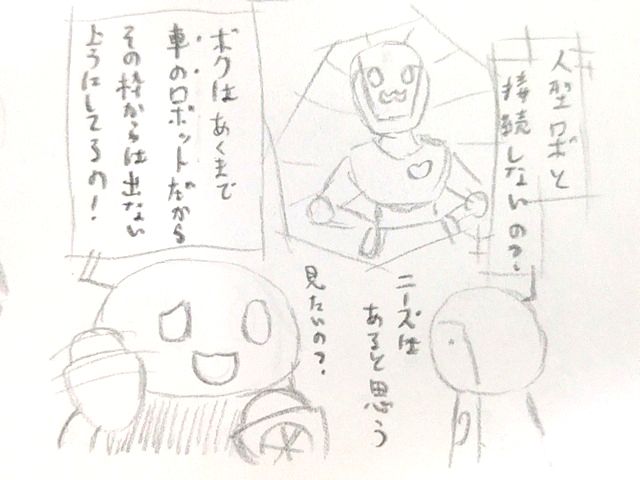 人型ロボと
接続しないの?
ボクはあくまで
車のロボットだから
その枠からは出ない
ようにしてるの!
ニーズは
あると思う
見たいの?